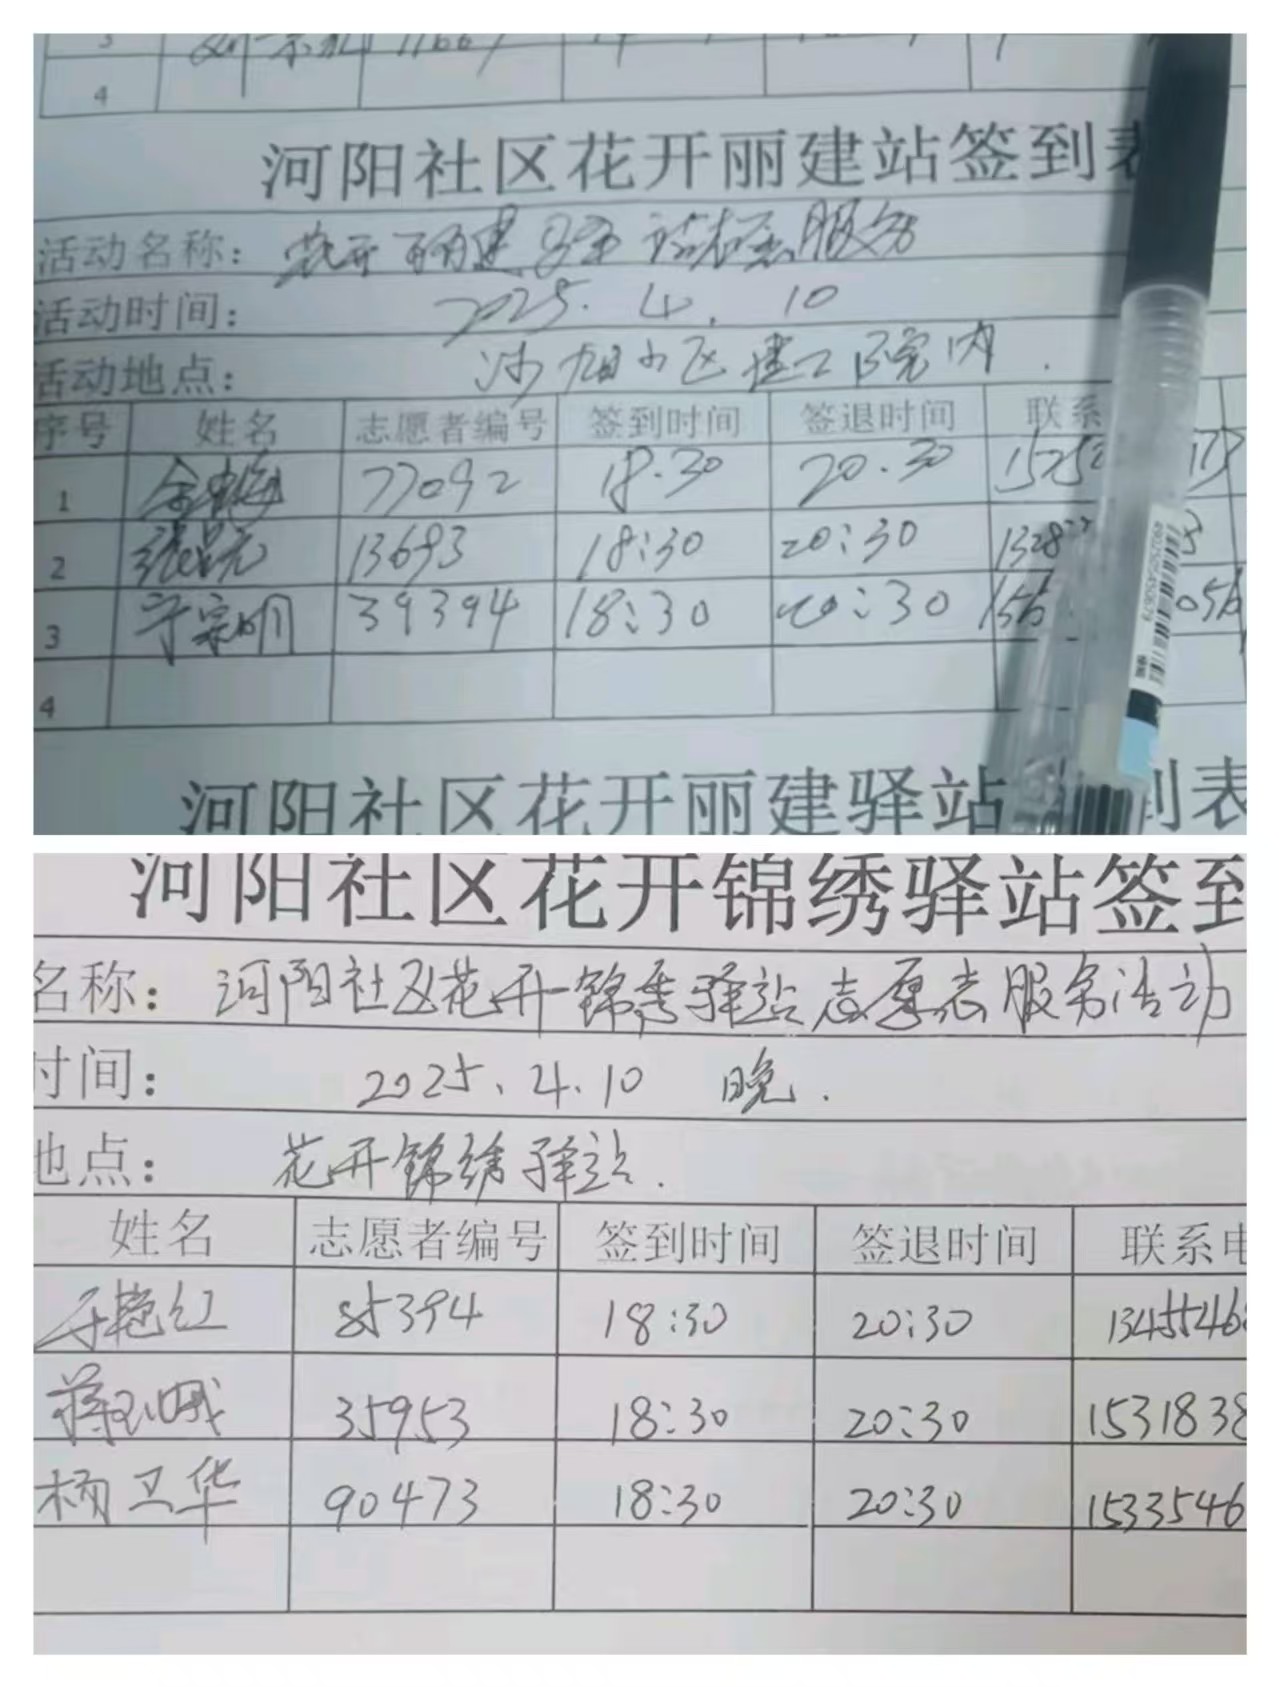 4
河阳社区花开丽建站签到表
活动名称：花开丽建 志愿服务
活动时间： 2025.4.10
活动地点： 小区建工院内.
序号 姓名 志愿者编号 签到时间 签退时间 联系
1 77092 18.30 20.30
2 13693 18:30 20:30
3 于宗明 39394 18:30 20:30
4
河阳社区花开丽建驿站 到表
河阳社区花开锦绣驿站签到
名称：河阳社区花开锦秀驿站志愿者服务活动
时间： 2025.4.10 晚.
地点： 花开锦绣驿站.
姓名 志愿者编号 签到时间 签退时间 联系电
于艳红 85394 18:30 20:30 1345546
蒋玉娥 35953 18:30 20:30 1531838
杨卫华 90473 18:30 20:30 1533546